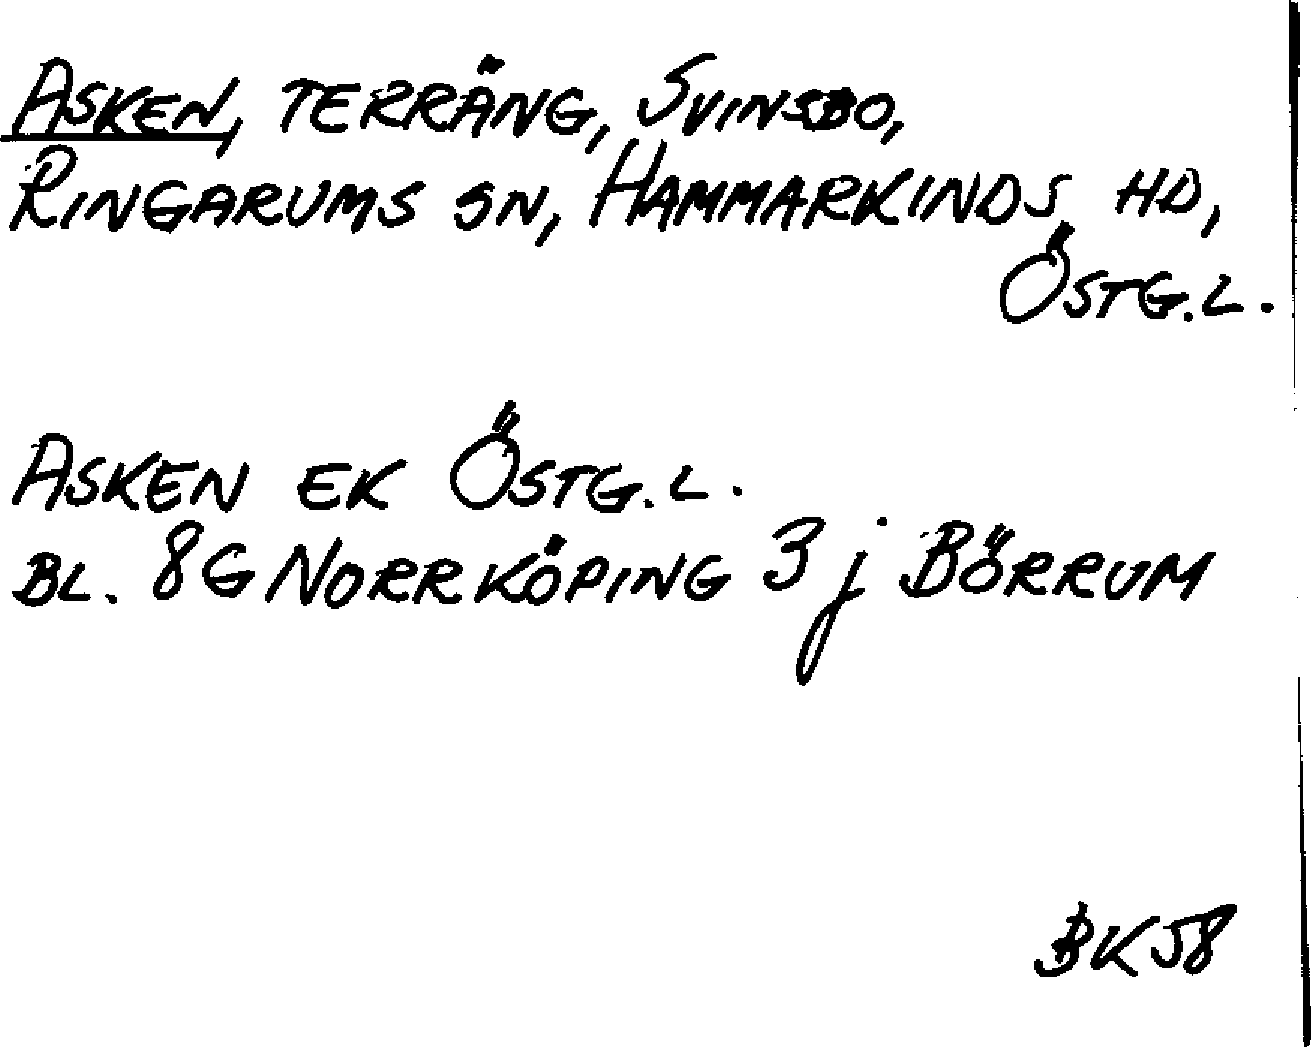 ASKEN, TERRÄNG, SVINSBO,
RINGARUMS SN, HAMMARKINDS HD,
ÖSTG.L.
ASKEN EK ÖSTG.L.
BL. 8G NORRKÖPING 3j BÖRRUM
BK58